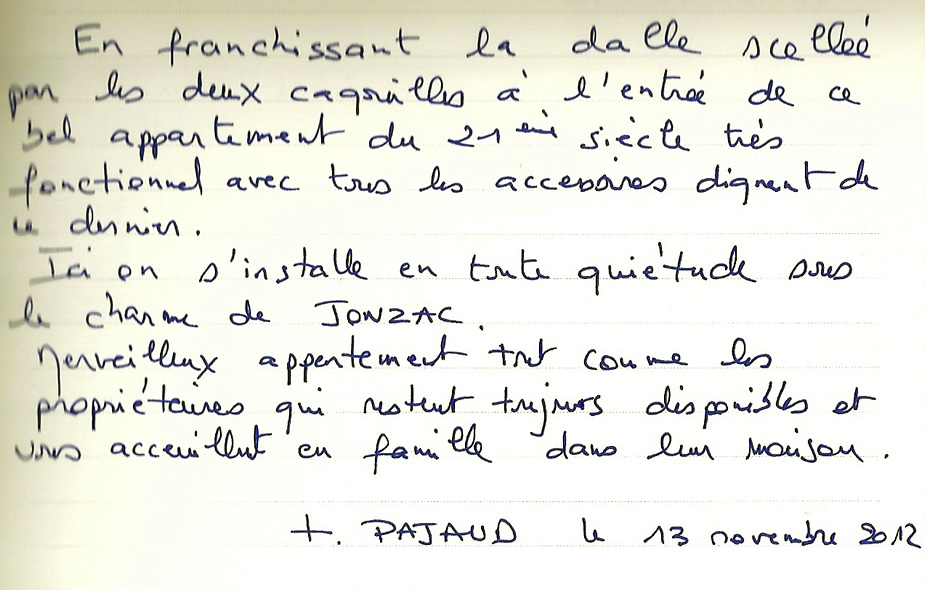 En franchissant la dalle scelleé
par les deux cagouilles à l'entrée de ce
bel appartement du 21 eme siècle très
fonctionnel avec tous les accessoires dignent de
ce dernier.
Ici on s'installe en toute quiétude sous
le charme de JONZAC.
Merveilleux appartement tout comme les
propriétaires qui restent toujours disponibles et
vous acceuillent en famille dans leur maison.
+. PAJAUD le 13 novembre 2012